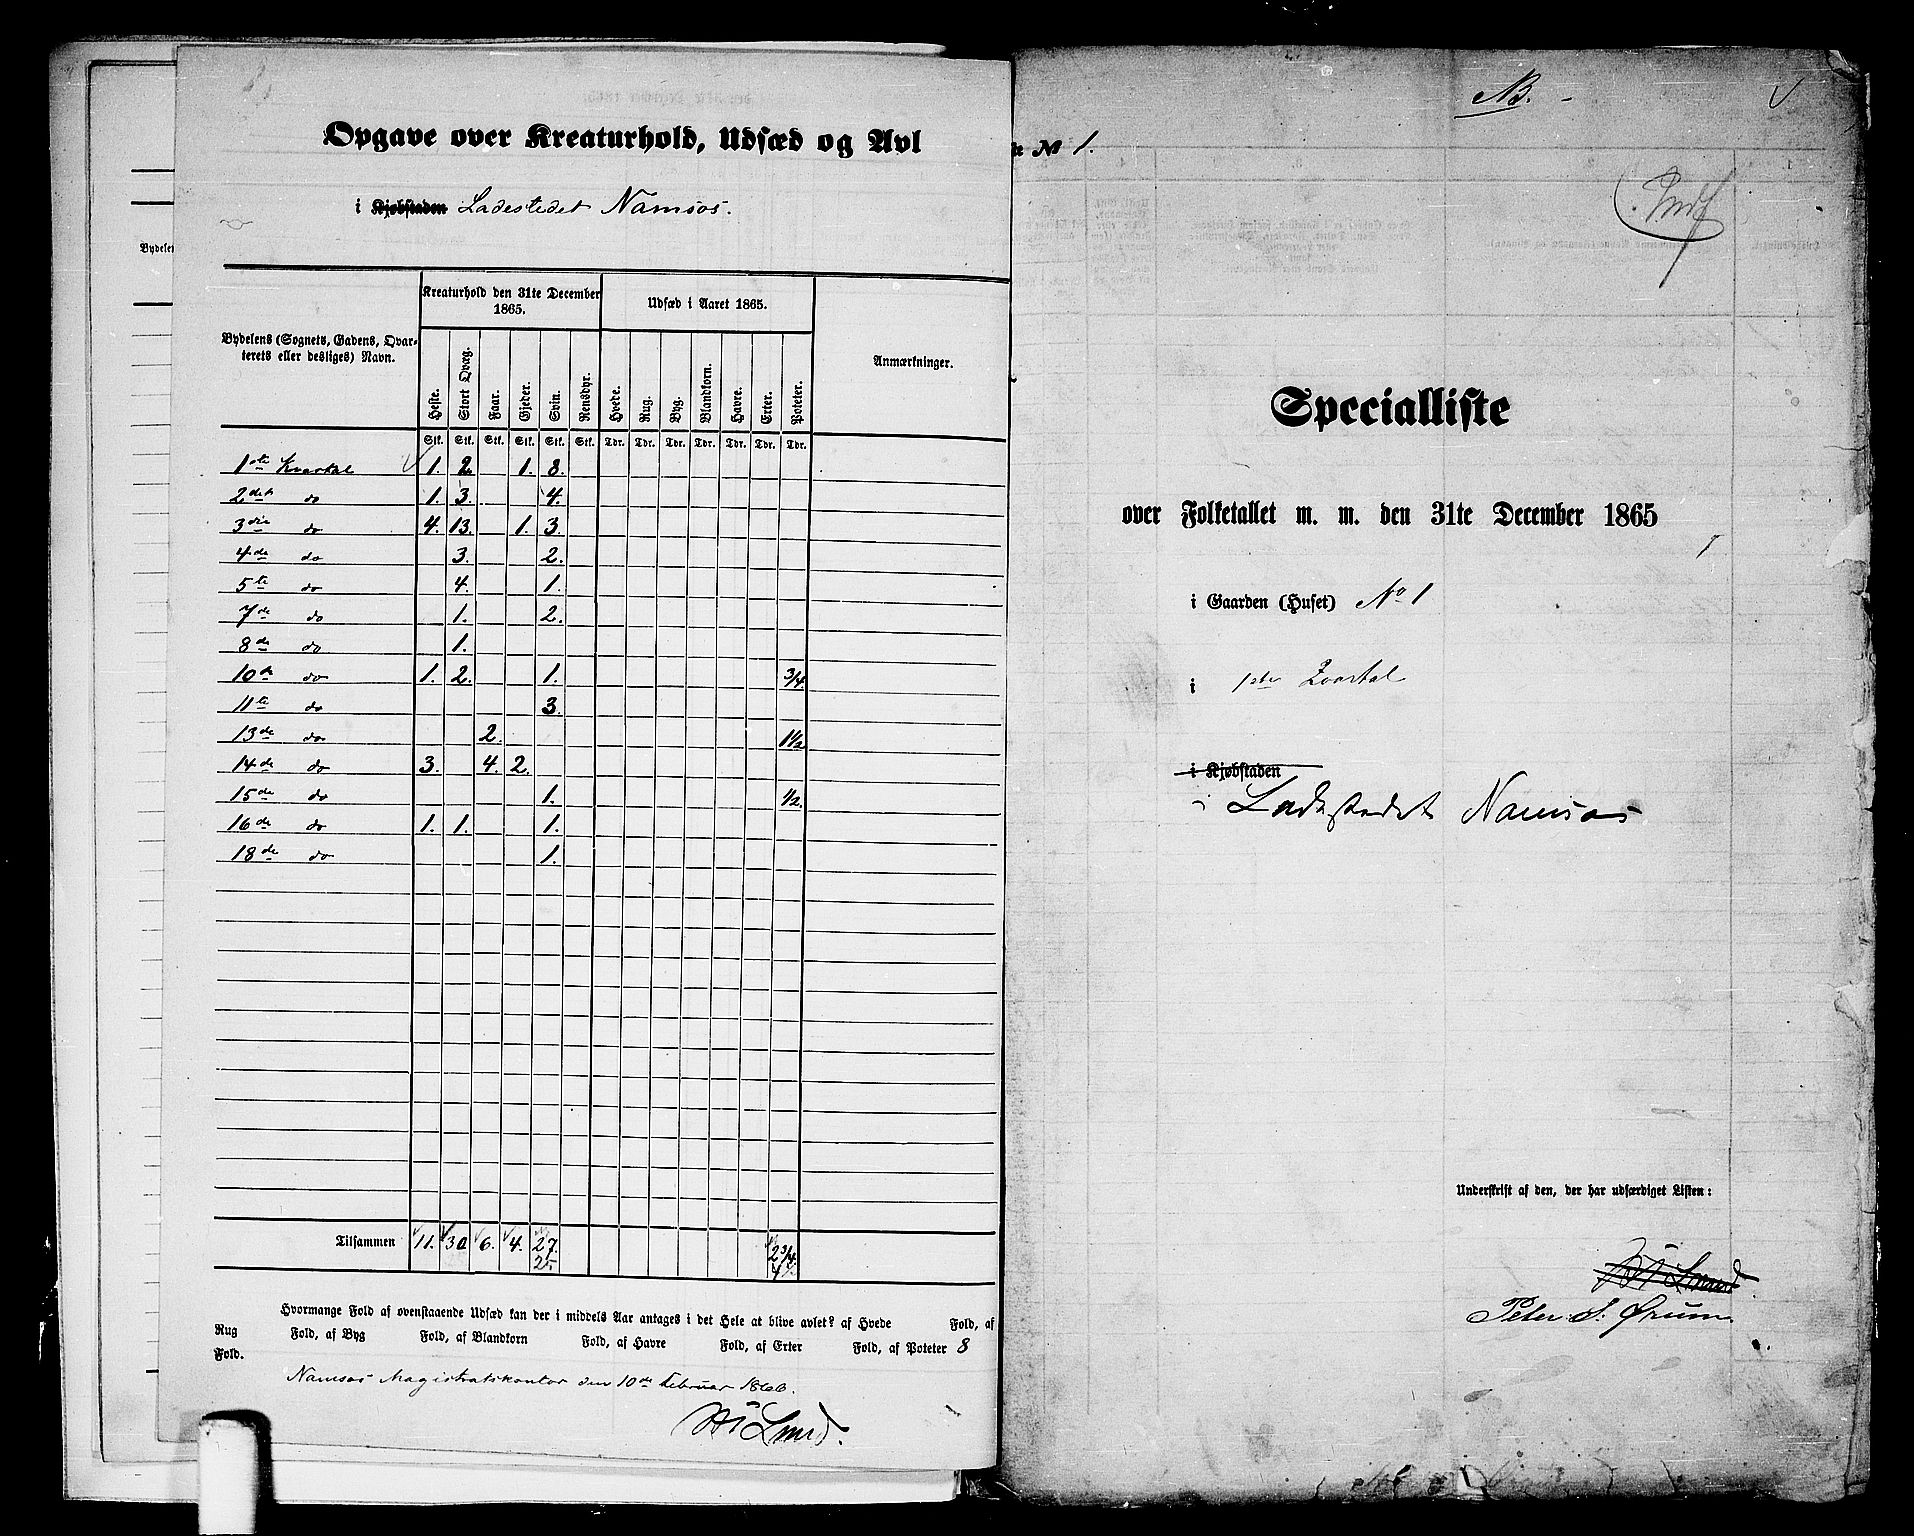 Opgave over Kreaturhold, Udsæd og Avl
i Kjøbstaden Ladestedet Namsos.
Bydelens (Sognets, Gadens, Qvarterets eller desliges) Navn.
Kreaturhold den 31te December 1865.
Udsæd i Aaret 1865.
Anmærkninger.
Heste. Stort Qvæg. Faar. Gjeder. Svin. Rensdyr. Hvede. Rug. Byg. Blandkorn. Havre. Erter. Poteter.
Stk. Stk. Stk. Stk. Stk. Stk. Tdr. Tdr. Tdr. Tdr. Tdr. Tdr. Tdr.
1ste Kvartal 1. 2. 1. 8.
2det do 1. 3. 4.
3die do 4. 13. 1. 3.
4de do 3. 2.
5te do 4. 1.
7de do 1. 2.
8de do 1.
10de do 1. 2. 1. 3/4
11te do 3.
13de do 2. 1 1/2
14de do 3. 4. 2.
15de do 1. 1/2.
16de do 1. 1. 1.
18de do 1.
Tilsammen 11. 30 6. 4. 27. 2 3/4
25
Hvormange Fold af ovenstaaende Udsæd kan der i middels Aar antages i det Hele at blive avlet? af Hvede Fold, af
Rug Fold, af Byg Fold, af Blandkorn Fold, af Havre Fold, af Erter Fold, af Poteter 8
Fold.
Namsos Magistratskontor den 10de Februar 1866.
Bydelens
NB.
№ 1.
Specialliste
over Folketallet m. m. den 31te December 1865
i Gaarden (Huset) No 1
i 1ste Qvartal
i Kjøbstaden
i Ladestedet Namsos
Underskrift af den, der har udfærdiget Listen:
Peter S. Ørum